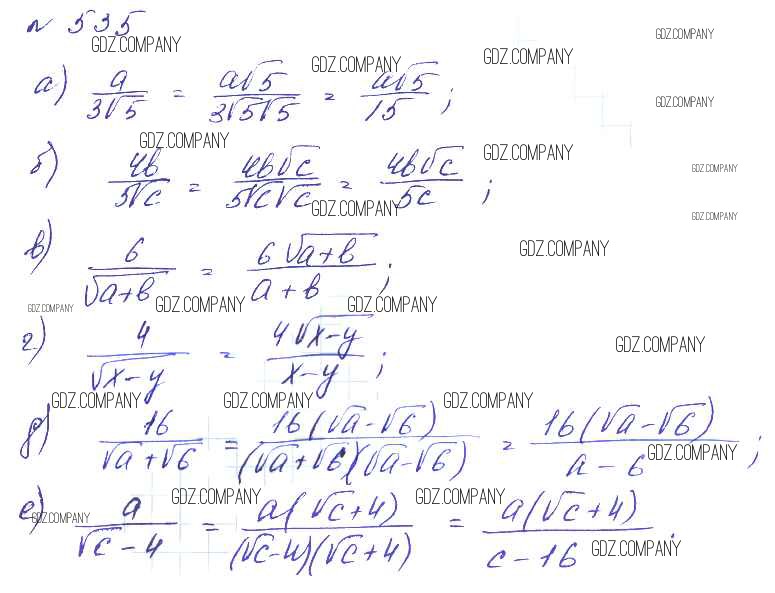 № 535
GDZ.COMPANY GDZ.COMPANY GDZ.COMPANY GDZ.COMPANY
а) a/(3√5) = a√5/(3√5√5) = a√5/15 ;
GDZ.COMPANY
GDZ.COMPANY GDZ.COMPANY GDZ.COMPANY
б) 4b/(5√c) = 4b√c/(5√c√c) = 4b√c/(5c) ;
GDZ.COMPANY GDZ.COMPANY
в) 6/√(a+b) = 6√(a+b)/(a+b) ;
GDZ.COMPANY
GDZ.COMPANY GDZ.COMPANY GDZ.COMPANY
г) 4/√(x-y) = 4√(x-y)/(x-y) ;
GDZ.COMPANY
GDZ.COMPANY GDZ.COMPANY GDZ.COMPANY
д) 16/(√a+√6) = 16(√a-√6)/((√a+√6)(√a-√6)) = 16(√a-√6)/(a-6) ;
GDZ.COMPANY
GDZ.COMPANY GDZ.COMPANY GDZ.COMPANY
е) a/(√c-4) = a(√c+4)/((√c-4)(√c+4)) = a(√c+4)/(c-16) .
GDZ.COMPANY